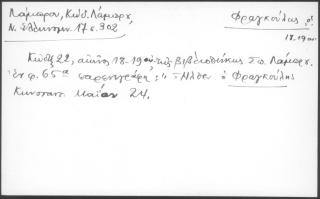 Λάμπρου, Κώδ. Λάμπρ.
Ν. Ἑλληνομν. 17 σ. 302
Φραγκούλης ὁ
18.19 αι.
Κώδιξ 22, αἰῶνος 18-19ου τῆς βιβλιοθήκης Σπ. Λάμπρ.
Ἐν φ. 65α παρεγγράφη: "Ἦλθε ὁ Φραγκούλης
Μαΐου 24.